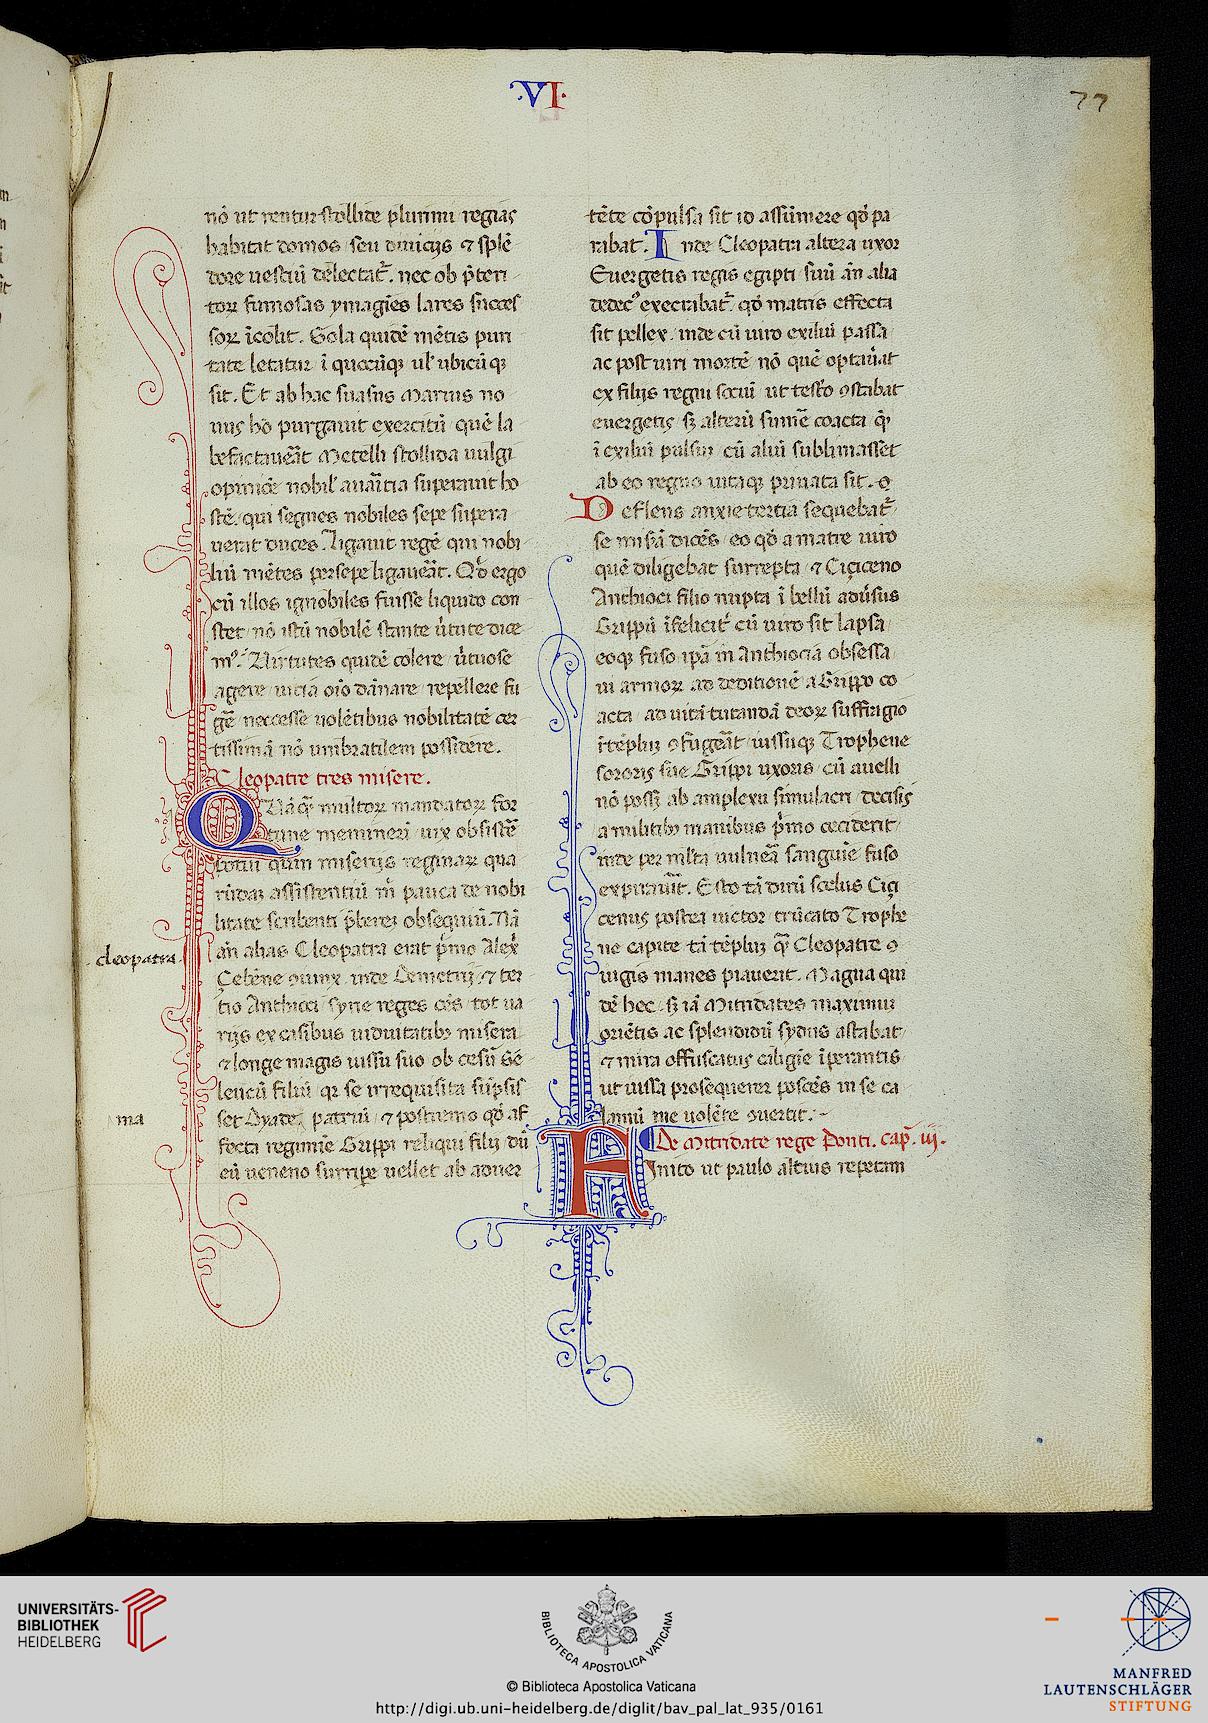 ·VI·
77
nō ut rentur stollide plurimi regias
habitat domos seu diuicijs ⁊ splē
dore uestiū delectat̄. nec ob p̄teri
toꝝ fumosas ymagīes lares succes
soꝝ īcolit. Sola quidē mētis puri
tate letatur ī quocūqꝫ ul' ubicūqꝫ
sit. Et ab hac suasus Marius no
uus hō purgauit exercitū quē la
befactauerāt Metelli stollida uulgi
opinione nobil' auaricia superauit ho
stē qui segnes nobiles sepe supera
uerat duces. Ligauit regē qui nobi
liū mētes persepe ligauerāt. Qd' ergo
cū illos ignobiles fuisse liquido con
stet nō istū nobilē stante uirtute dice
mꝰ. Virtutes quidē colere uirtuose
agere uicia oīo dānare repellere fu
gē neccesse uolētibus nobilitatē cer
tissimā nō umbratilem possidere.
Cleopatre tres misere.
Qua q̄ multoꝝ mandatoꝝ for
tune meminerī uix obsistē
potui quin miserijs reginaꝝ qua
rūdaꝝ assistentiū m̄ pauca de nobi
litate scribenti p̄berem obsequiū. Nā
an̄ alias Cleopatra erat p̄mo Alex̄
Cebēne 9iunx inde Demetrij ⁊ ter
tio Anthioci syrie reges cēs tot ua
rijs ex casibus uiduitatibꝫ misera
⁊ longe magis iussu suo ob cesū Se
leucū filiū qꝛ se irrequisita sūpsis
set Dyadē patriū ⁊ postremo qd' af
fecta regimīe Grippi reliqui filij dū
eū ueneno surripe uellet ab aduer
cleopatra.
ma
tēte cōpulsa sit id assūmere qd' pa
rabat. Inde Cleopatra altera uxor
Euergetis regis egipti suū an̄ alia
dedecꝰ execrabat̄ qd' matris effecta
sit pellex. inde cū uiro exiliū passa
ac post uiri mortē nō quē optauerat
ex filijs regni sociū ut testo 9stabat
euergetis sꝫ alterū sumē coacta q̄
ī exiliū pulsum cū aliū sublimasset
ab eo regno uitaqꝫ priuata sit. ⁊
Deflens anxie tertia sequebat̄
se miserā dicēs eo qd' a matre uiro
quē diligebat surrepta ⁊ Ciçiceno
Anthioci filio nupta ī bellū aduersus
Grippū īfelicit' cū uiro sit lapsa
eoqꝫ fuso ipā in Anthiocia obsessa
ui armoꝝ ad deditionē a Grippo co
acta ad uitā tutandā deoꝝ suffragio
ī tēplū 9fugerāt iussuqꝫ Tropheue
sororis sue Grippi uxoris cū auelli
nō posset ab amplexu simulacri decisis
a militibꝫ manibus p̄mo ceciderit
inde per ml'ta uulnera sanguīe fuso
expirauit. Esto tā dirū scelus Ciçi
cenus postea uictor trūcato Trophe
ue capite tā tēplū q̄ Cleopatre 9
iugis manes piauerit. Magna qui
dē hec sꝫ iā Mitridates maximū
oriētis ac splendidū sydus astabat
⁊ mira offuscatus caligīe īperantis
ut iussa prosequerer poscēs in se ca
lamū me uolēte 9uertit.
De Mitridate rege Ponti. cap̄. iij.
Animo ut paulo altius repetam
UNIVERSITÄTS-
BIBLIOTHEK
HEIDELBERG
BIBLIOTECA APOSTOLICA VATICANA
© Biblioteca Apostolica Vaticana
http://digi.ub.uni-heidelberg.de/diglit/bav_pal_lat_935/0161
MANFRED
LAUTENSCHLÄGER
STIFTUNG